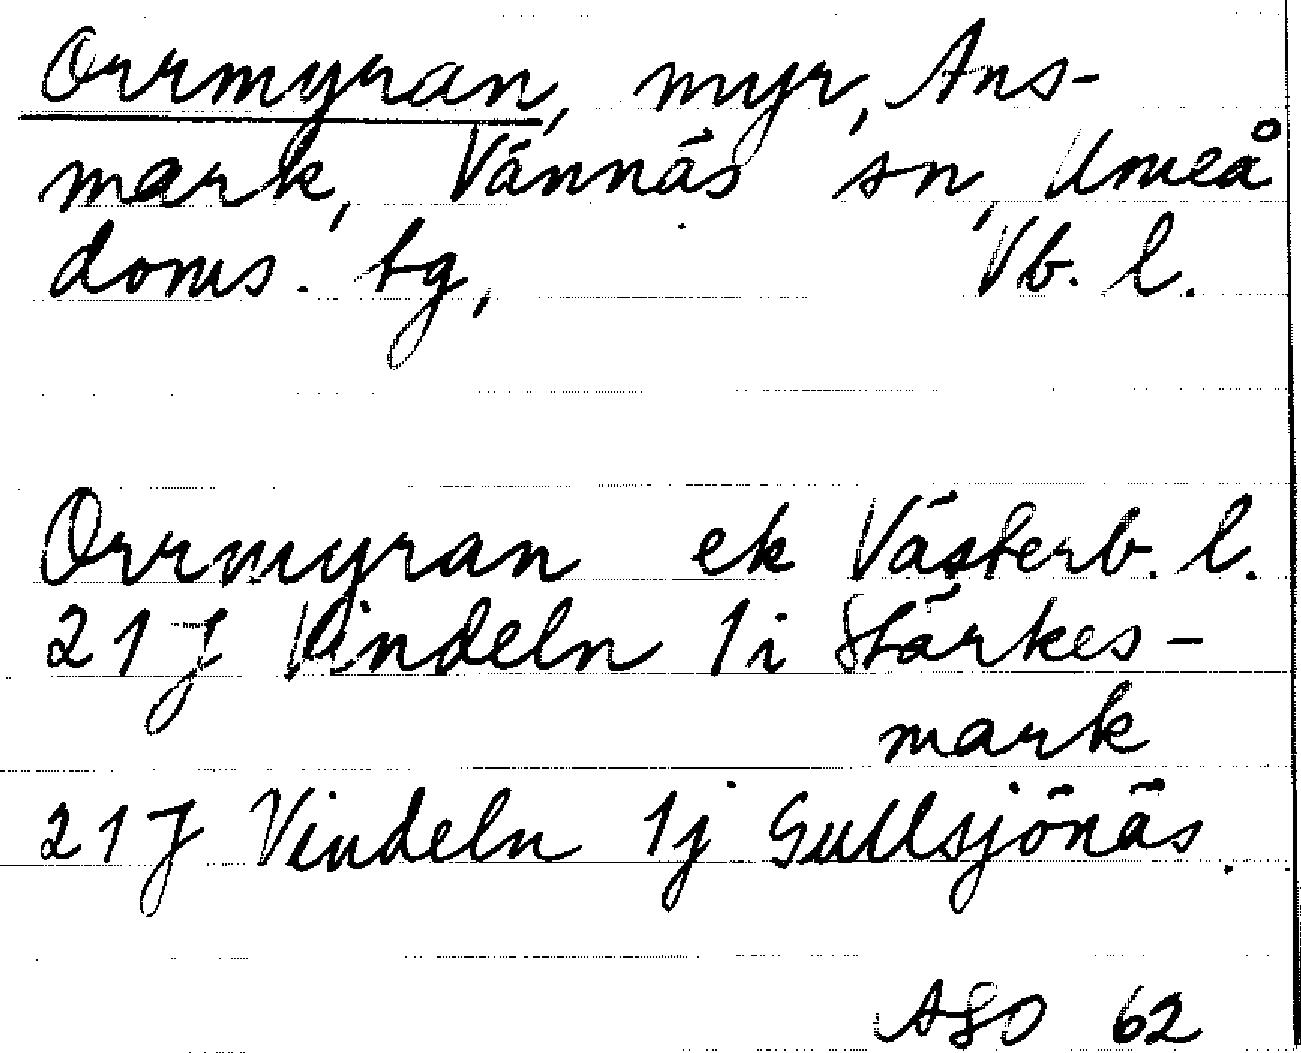 Orrmyran, myr, Ans-
mark, Vännäs sn, Umeå
doms. tg, Vb. l.
Orrmyran ek Västerb. l.
21 J Vindeln 1i Stärkes-
mark
21 J Vindeln 1j Gullsjönäs.
62